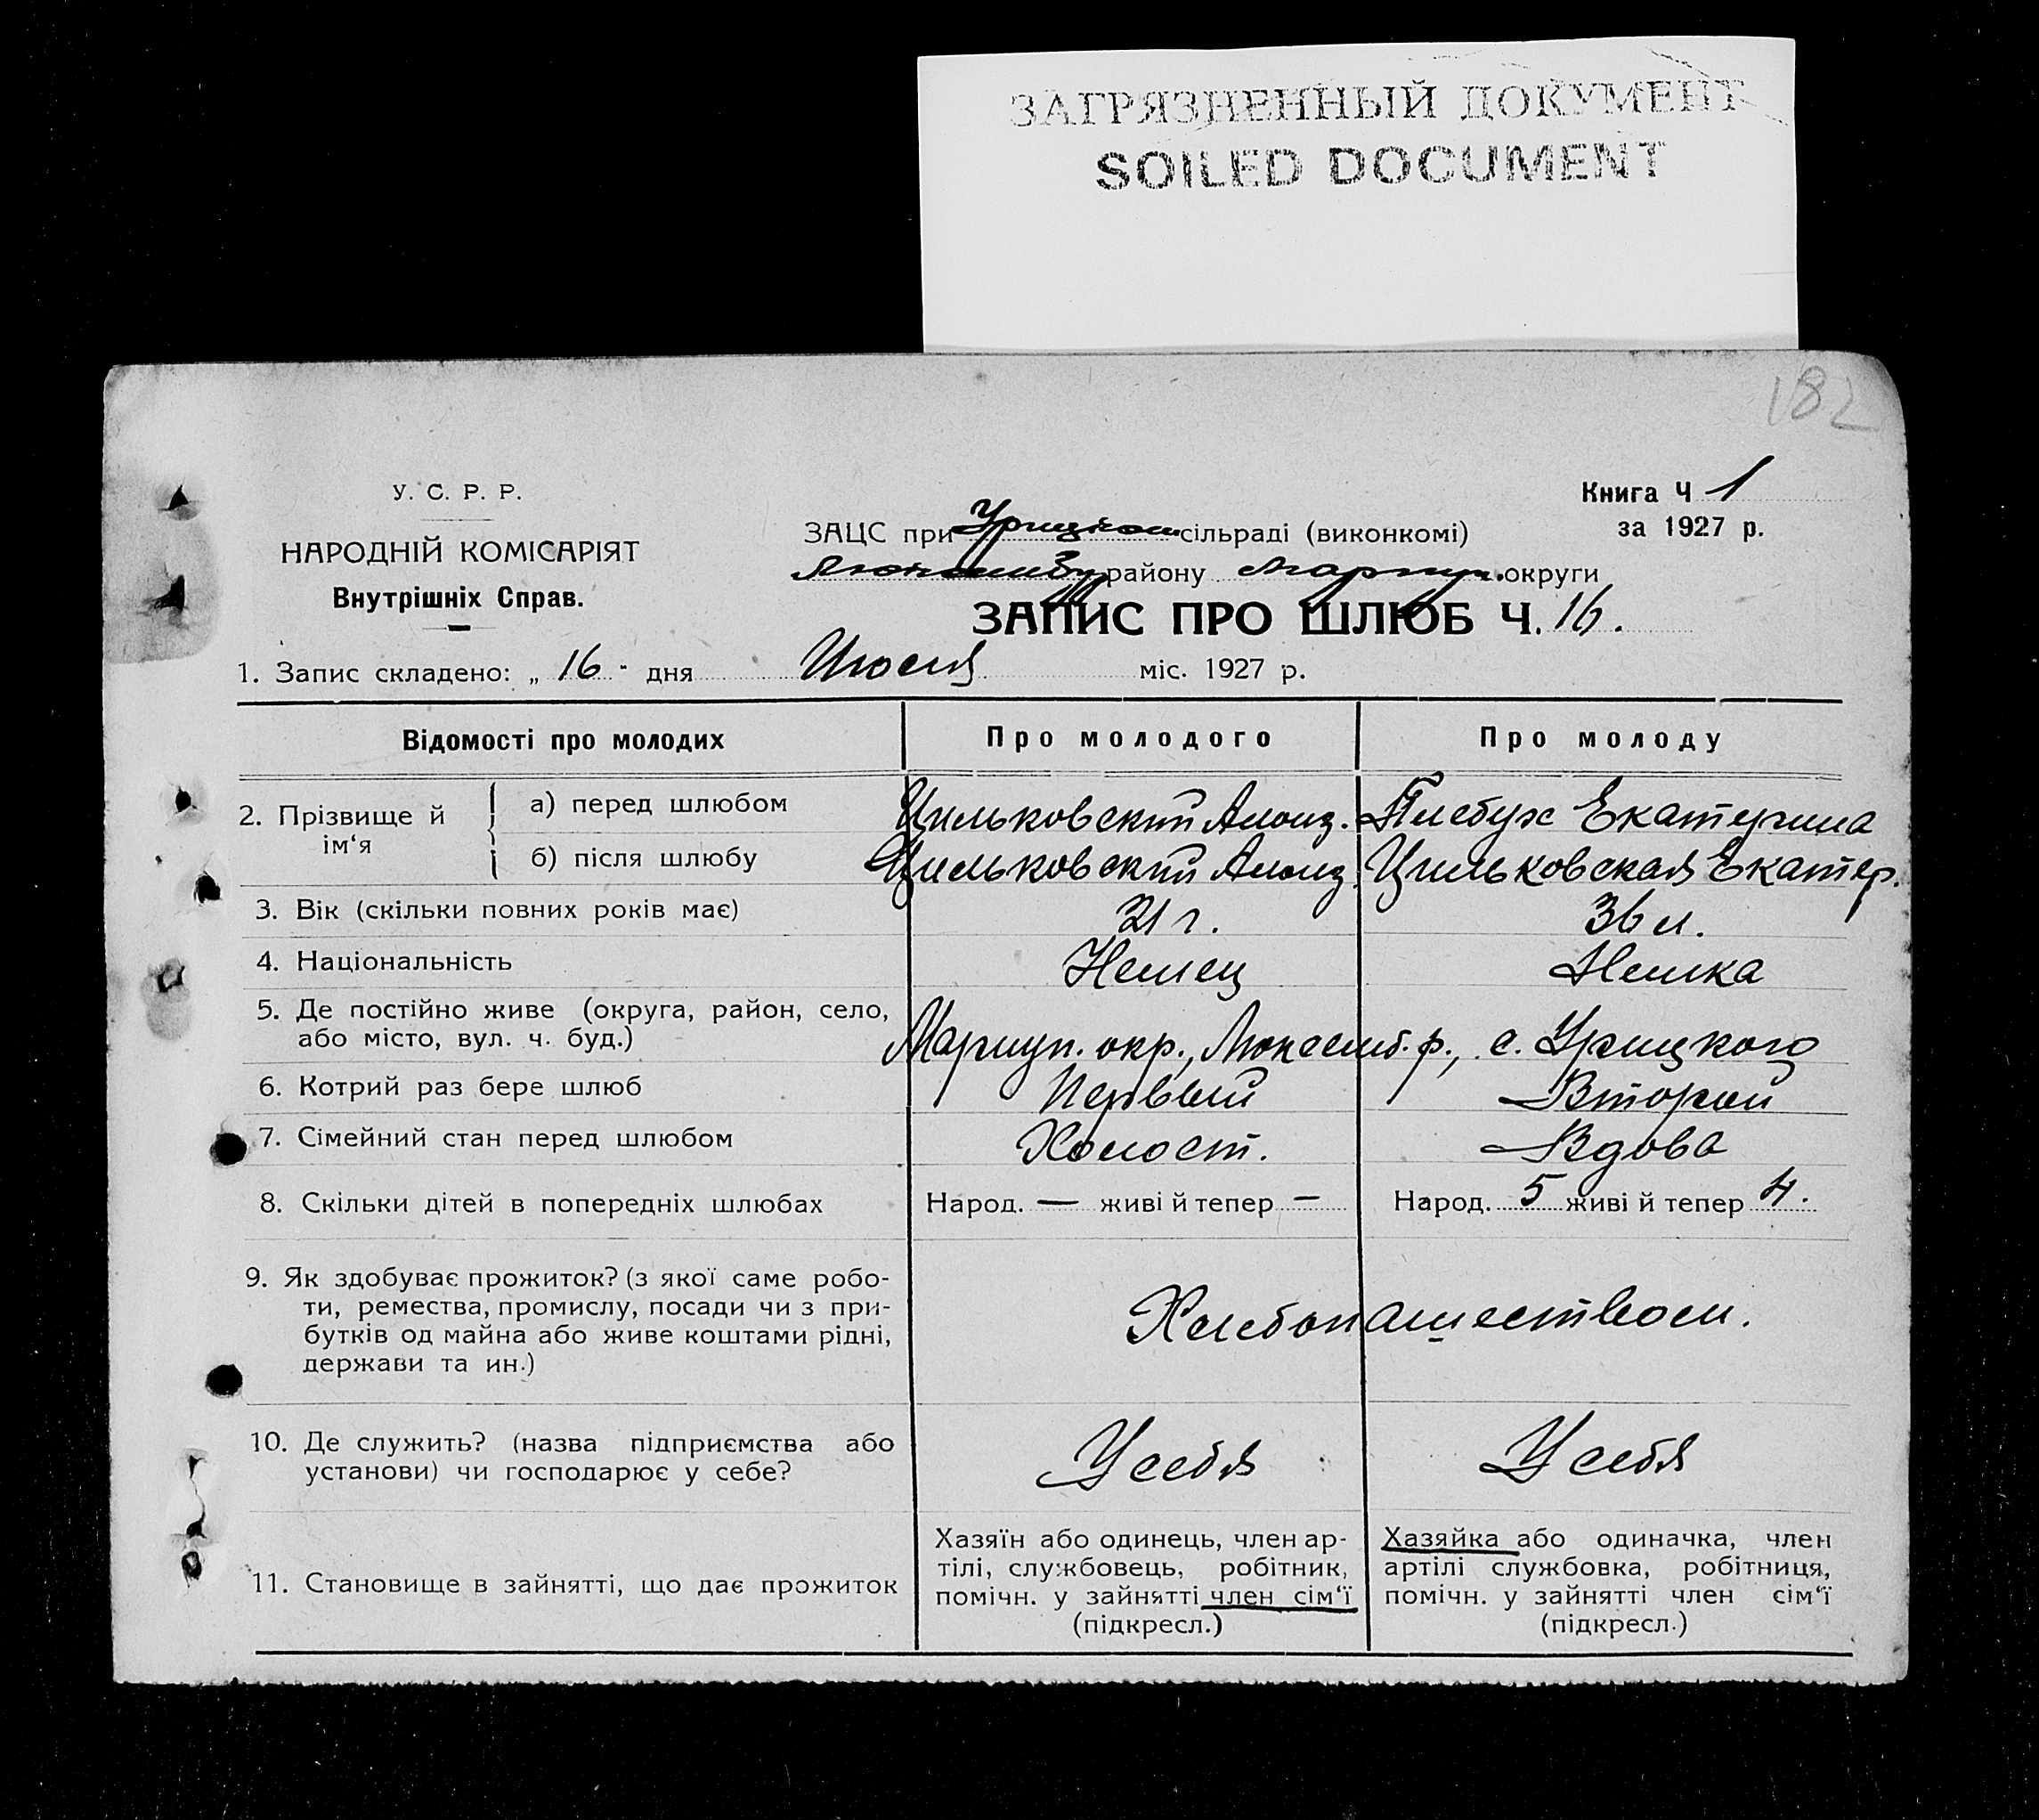 ЗАГРЯЗНЕННЫЙ ДОКУМЕНТ
SOILED DOCUMENT
182
У. С. Р. Р.
НАРОДНІЙ КОМІСАРІЯТ
Внутрішніх Справ.
Книга Ч 1
за 1927 р.
ЗАЦС при Урицком сільраді (виконкомі)
району Мариуп. округи
ЗАПИС ПРО ШЛЮБ Ч. 16.
1. Запис складено: „ 16 " дня Июля міс. 1927 р.
Відомості про молодих
Про молодого
Про молоду
2. Прізвище й ім‘я
а) перед шлюбом
Цильковский Алоиз.
Екатерина
б) після шлюбу
Цильковский Алоиз.
Цильковская Екатер.
3. Вік (скільки повних років має)
21 г.
36 л.
4. Національність
Немец
Немка
5. Де постійно живе (округа, район, село,
або місто, вул. ч. буд.)
Мариуп. окр., Люксемб. р., с. Урицкого
6. Котрий раз бере шлюб
Первый
Второй
7. Сімейний стан перед шлюбом
Холост.
Вдова
8. Скільки дітей в попередніх шлюбах
Народ. — живі й тепер —
Народ. 5 живі й тепер 4.
9. Як здобуває прожиток? (з якої саме робо-
ти, ремества, промислу, посади чи з при-
бутків од майна або живе коштами рідні,
держави та ин.)
Хлебопашеством.
10. Де служить? (назва підприємства або
установи) чи господарює у себе?
У себя
У себя
11. Становище в зайнятті, що дає прожиток
Хазяїн або одинець, член ар-
тілі, службовець, робітник,
помічн. у зайнятті член сім‘ї
(підкресл.)
Хазяйка або одиначка, член
артілі службовка, робітниця,
помічн. у зайнятті член сім‘ї
(підкресл.)